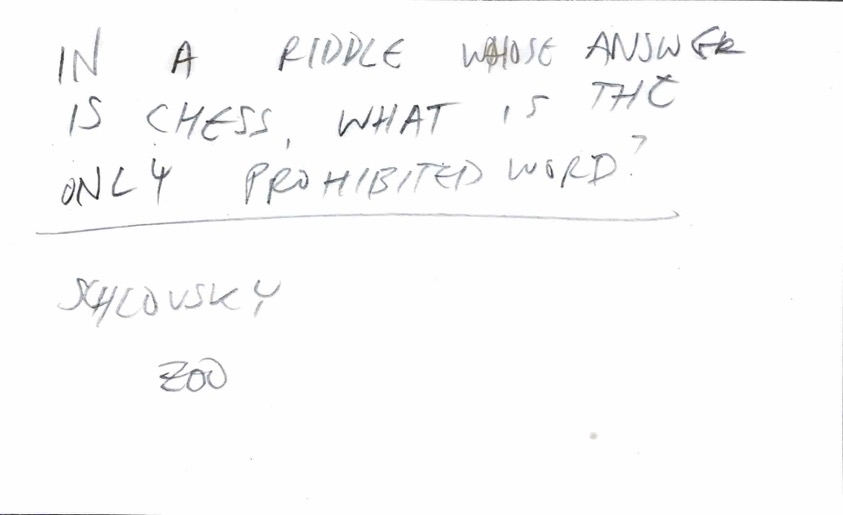 IN A RIDDLE WHOSE ANSWER
IS CHESS, WHAT IS THE
ONLY PROHIBITED WORD?
SCHLOVSKY
ZOO